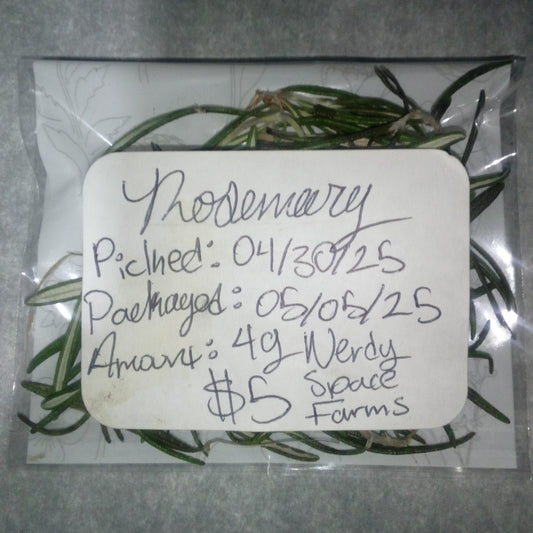 Rosemary
Picked: 04/30/25
Packaged: 05/05/25
Amount: 4g Nerdy
$5 Space
Farms